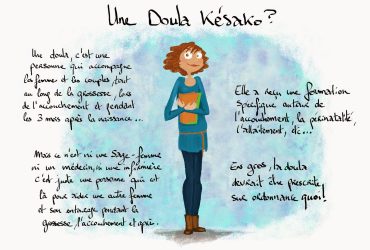 Une Doula Késako?
Une doula, c'est une
personne qui accompagne
la femme et les couples, tout
au long de la grossesse, lors
de l'accouchement et pendant
les 3 mois après la naissance...
Mais ce n'est ni une Sage-femme
ni un médecin, ni une infirmière
c'est juste une personne qui est
là pour aider une autre femme
et son entourage pendant la
grossesse, l'accouchement et après.
Elle a reçu une formation
spécifique autour de
l'accouchement, la périnatalité,
l'allaitement, etc...
En gros, la doula
devrait être prescrite
sur ordonnance quoi!